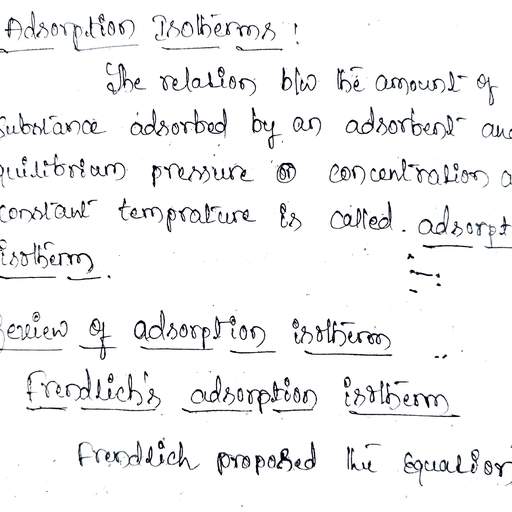 Adsorption Isotherms :
The relation b/w the amount of
substance adsorbed by an adsorbent and
quilibrium pressure or concentration a
constant temprature is called. adsorpt
isotherm.
Review of adsorption isotherm
Frendlich's adsorption isotherm
Frendlich proposed the equation